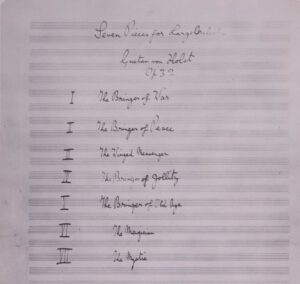 Seven Pieces for Large
Gustav von Holst
Op 32
I The Bringer of War
The Bringer of Peace
The Winged Messenger
The Bringer of Jollity
The Bringer of Old Age
The Magician
The Mystic